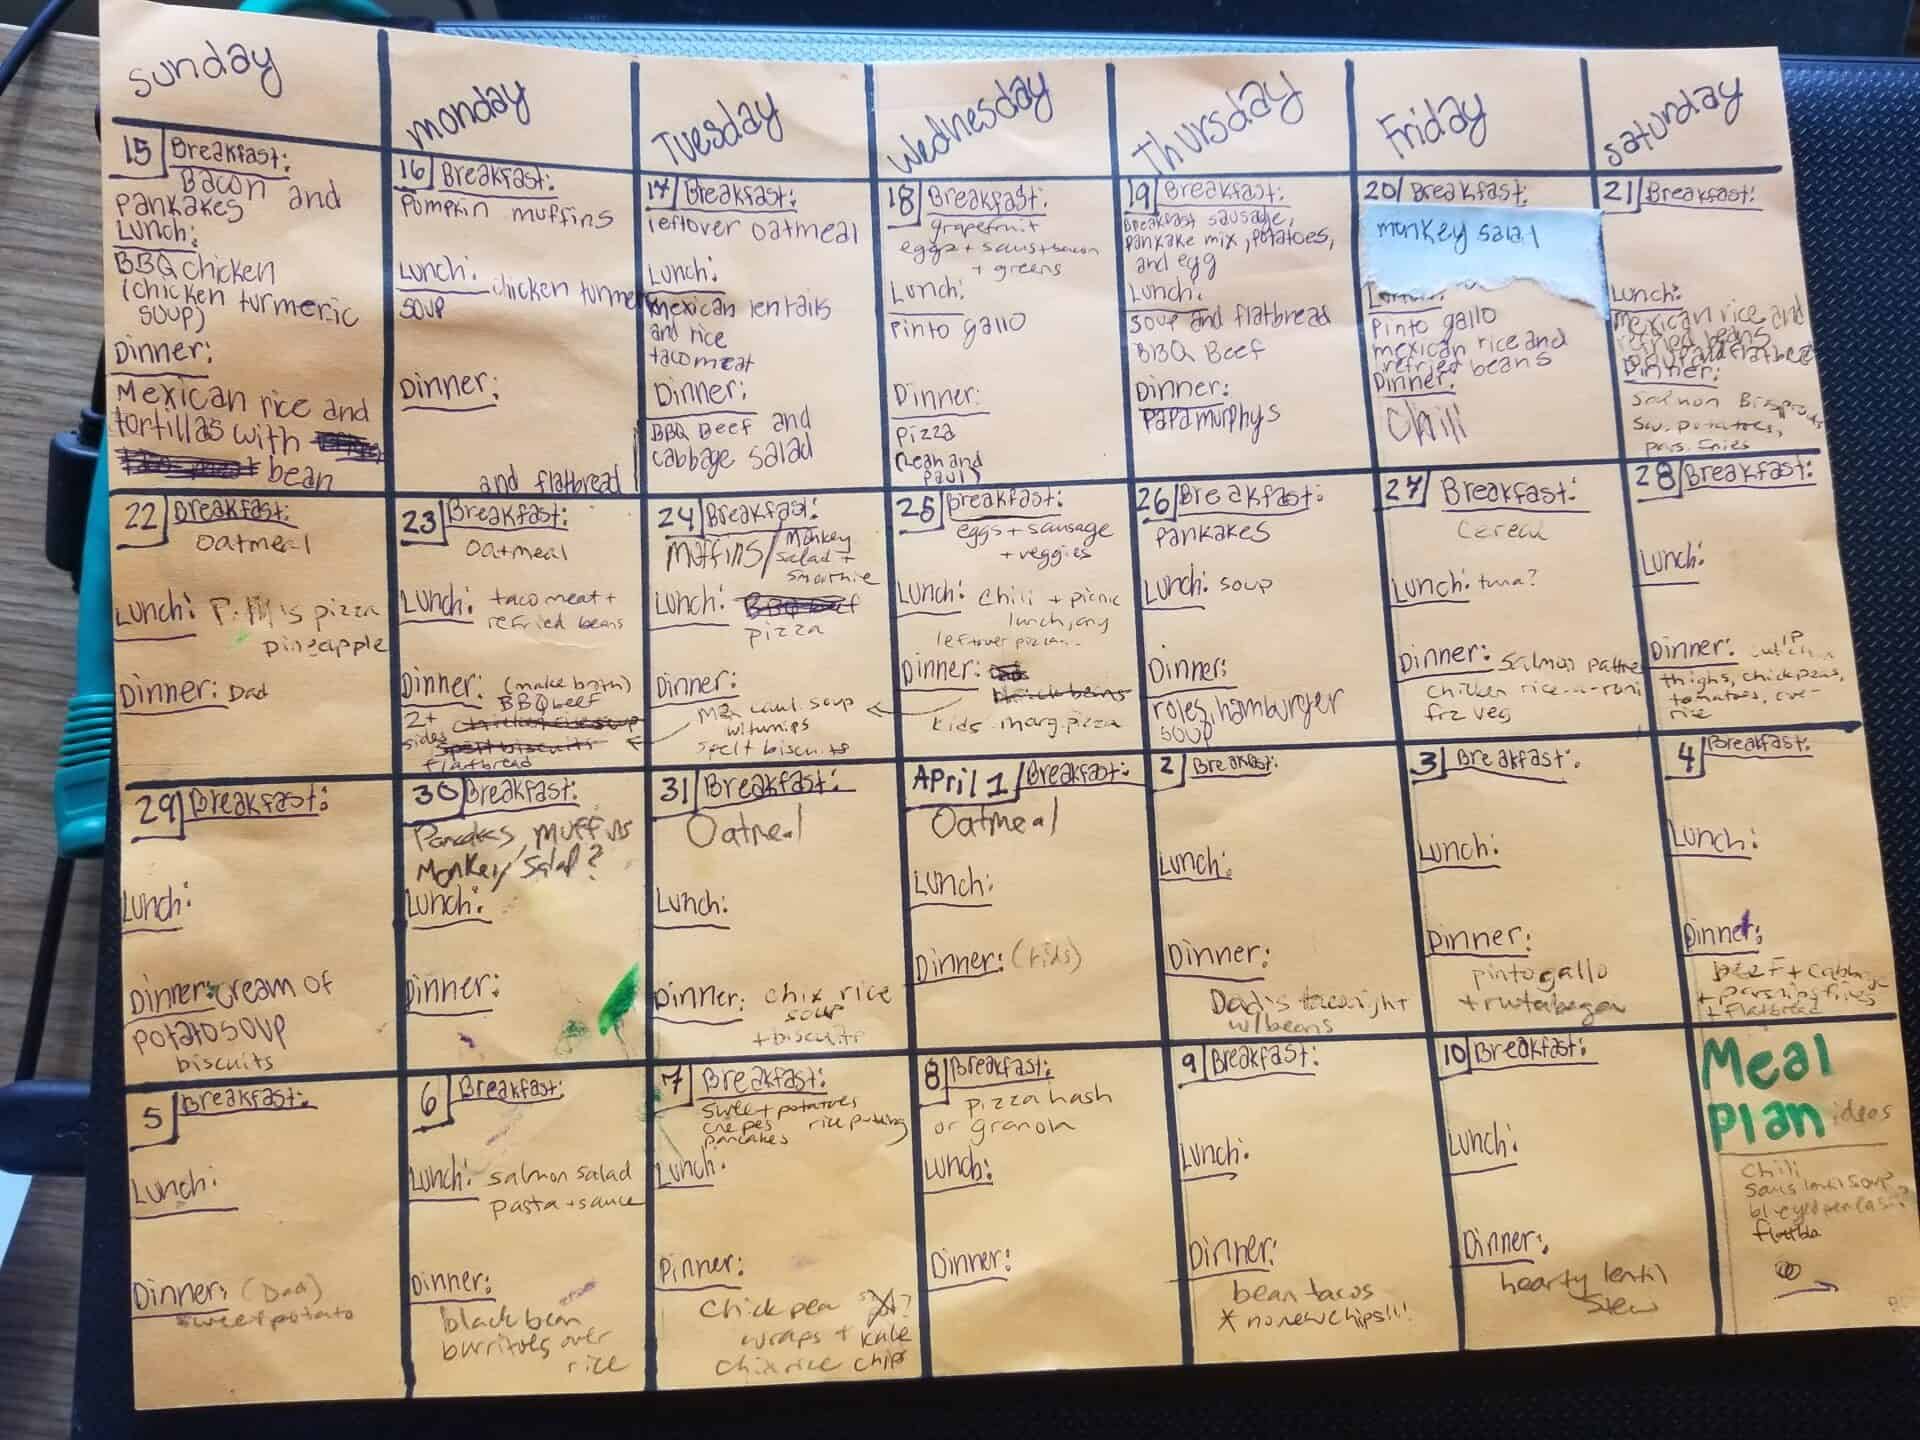 Sunday
monday
Tuesday
Wednesday
Thursday
Friday
Saturday
15 Breakfast:
Bacon and
pankakes
Lunch:
BBQ chicken
(chicken turmeric
soup)
Dinner:
Mexican rice and
tortillas with
bean
16 Breakfast:
Pumpkin muffins
Lunch: chicken turmeric
soup
Dinner:
and flatbread
17 Breakfast:
leftover oatmeal
Lunch:
mexican lentails
and rice
taco meat
Dinner:
BBQ Beef and
cabbage salad
18 Breakfast:
grapefruit
eggs + saus + bacon
+ greens
Lunch:
Pinto gallo
Dinner:
Pizza
(Leah and
Paul)
19 Breakfast:
Breakfast sausage,
pankake mix, potatoes,
and egg
Lunch:
soup and flatbread
BBQ Beef
Dinner:
papa murphys
20 Breakfast:
monkey salad
Lunch:
Pinto gallo
mexican rice and
refried beans
Dinner:
Chili
21 Breakfast:
Lunch:
mexican rice and
refried beans
Dinner:
salmon
sw. potatoes,
pars. fries
22 Breakfast:
oatmeal
Lunch: pizza
pineapple
Dinner: Dad
23 Breakfast:
oatmeal
Lunch: taco meat +
refried beans
Dinner: (make broth)
BBQ beef
2+ chicken rice soup
sides spelt biscuits
flatbread
24 Breakfast:
Muffins / Monkey
salad +
smoothie
Lunch: BBQ beef
pizza
Dinner:
caul. soup
w/ turnips
spelt biscuits
25 Breakfast:
eggs + sausage
+ veggies
Lunch: chili + picnic
lunch, any
leftover pizza
Dinner:
kids marg. pizza
26 Breakfast:
pankakes
Lunch: soup
Dinner:
roles, hamburger
soup
27 Breakfast:
cereal
Lunch: tuna?
Dinner: salmon patties
chicken rice-a-roni
frz veg
28 Breakfast:
Lunch:
Dinner: IP
thighs, chick peas,
tomatoes,
rice
29 Breakfast:
Lunch:
Dinner: cream of
potato soup
biscuits
30 Breakfast:
Pancakes, muffins
Monkey salad?
Lunch:
Dinner:
31 Breakfast:
Oatmeal
Lunch:
Dinner: chix rice
soup
+ biscuits
April 1 Breakfast:
Oatmeal
Lunch:
Dinner: (kids)
2 Breakfast:
Lunch:
Dinner:
Dad's taco night
w/ beans
3 Breakfast:
Lunch:
Dinner:
pinto gallo
+ rutabaga
4 Breakfast:
Lunch:
Dinner:
beef + cabbage
+ parsnip fries
+ flatbread
5 Breakfast:
Lunch:
Dinner: (Dad)
sweet potato
6 Breakfast:
Lunch: salmon salad
pasta + sauce
Dinner:
black bean
burritoes over
rice
7 Breakfast:
sweet potatoes
crepes rice pudding
pancakes
Lunch:
Dinner:
Chick pea
wraps + kale
chix rice chips
8 Breakfast:
pizza hash
or granola
Lunch:
Dinner:
9 Breakfast:
Lunch:
Dinner:
bean tacos
* no new chips!!!
10 Breakfast:
Lunch:
Dinner:
hearty lentil
stew
Meal
Plan ideas
Chili
saus lentil soup